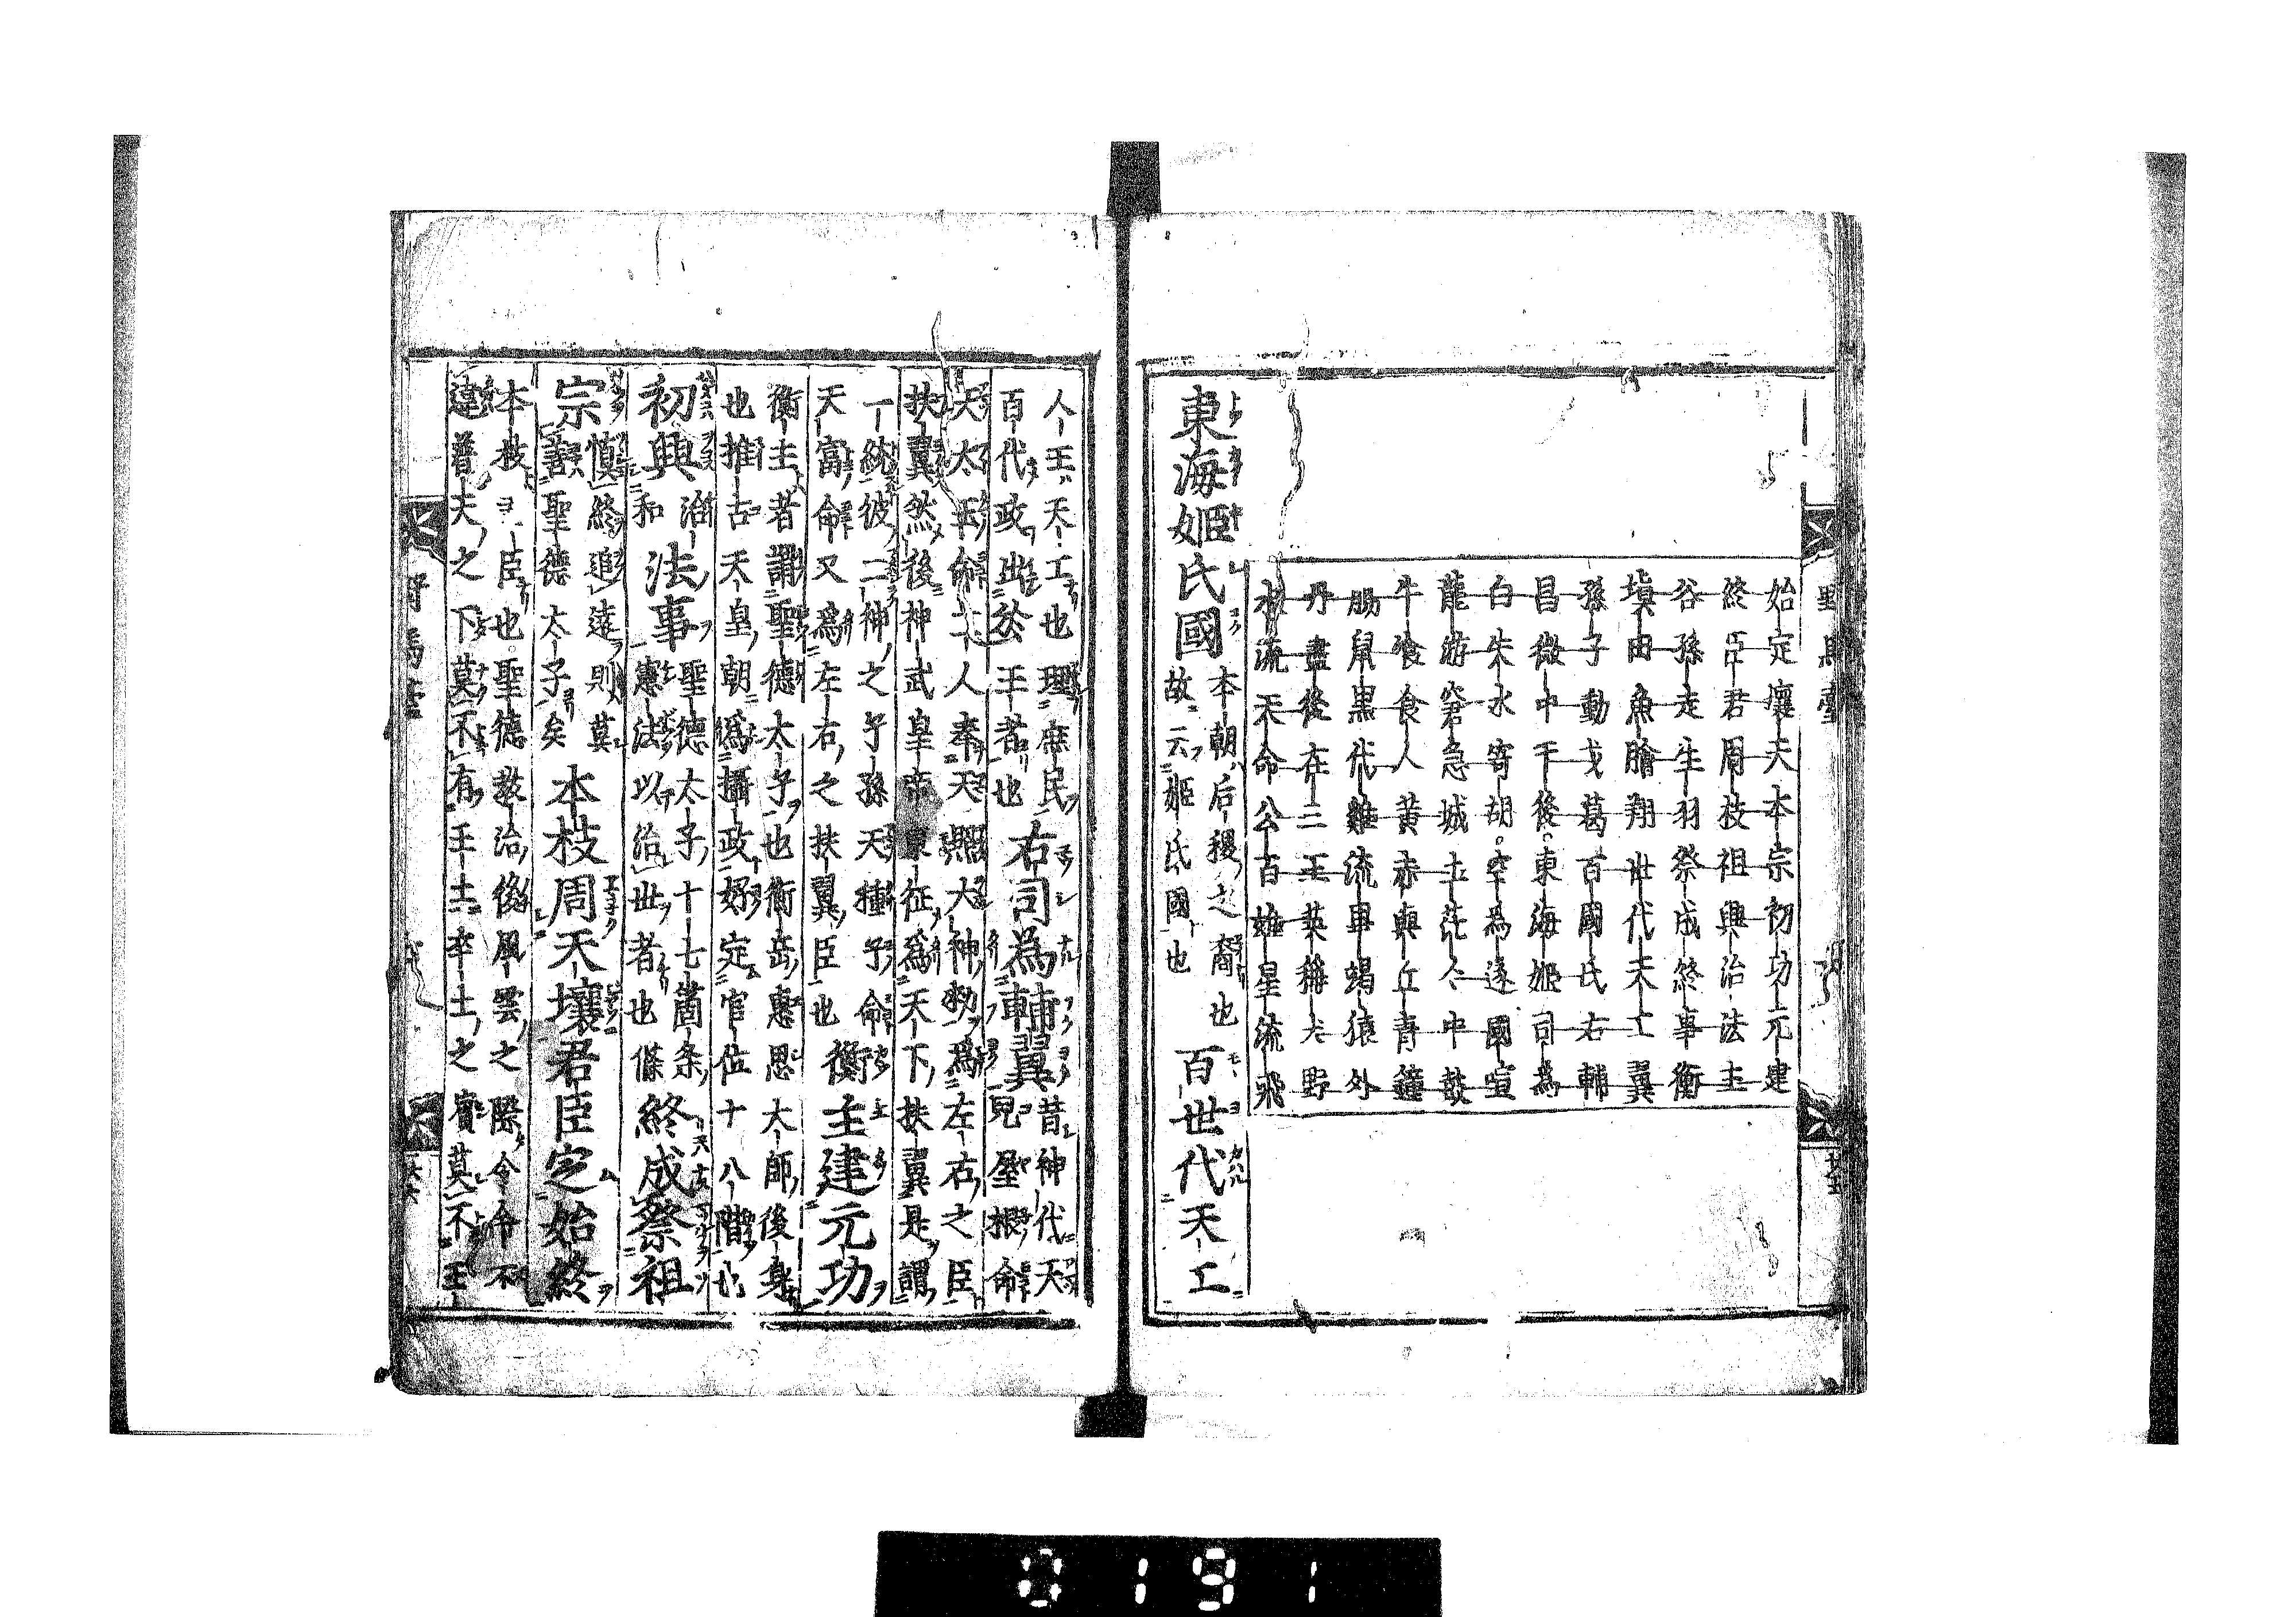 野馬臺
始定壤天本宗初功元建
終臣君周枝祖興治法主
谷孫走生羽祭成終事衡
塡田魚膾翔世代天工翼
孫子動戈葛百國氏右輔
昌微中干後東海姬司為
白朱水寄胡空為遂國喧
龍游窘急城土茫仝中鼓
牛喰食人黃赤與丘青鐘
腸鼠黑代雞流畢竭猿外
丹盡後在三王英稱犬野
水流天命公百雄星流飛
東海姬氏國
本朝后稷之裔也
故云姬氏國也
百世代天工
人王天工也理庶民
百代政出於王者也
右司為輔翼
昔神代天
兒屋根命
大太玉命二人奉天照大神勑為左右之臣
扶翼然後神武皇帝東征為天下扶翼是謂
一統彼二神之子孫天種子命
天富命又為左右之扶翼臣也
衡主建元功
衡主者謂聖德太子也衡岳惠思大師後身
也推古天皇朝為攝政好定官位十八階也
初興
治
和
法事
聖德太子十七箇条
憲法以治世者也條
終成祭祖
宗
愼終追遠則莫
善聖德太子矣
本枝周天壤君臣定始終
本枝ヨ臣也聖德敎治後風雲之際令命不
違普天之下莫不有王土率土之濱莫不王